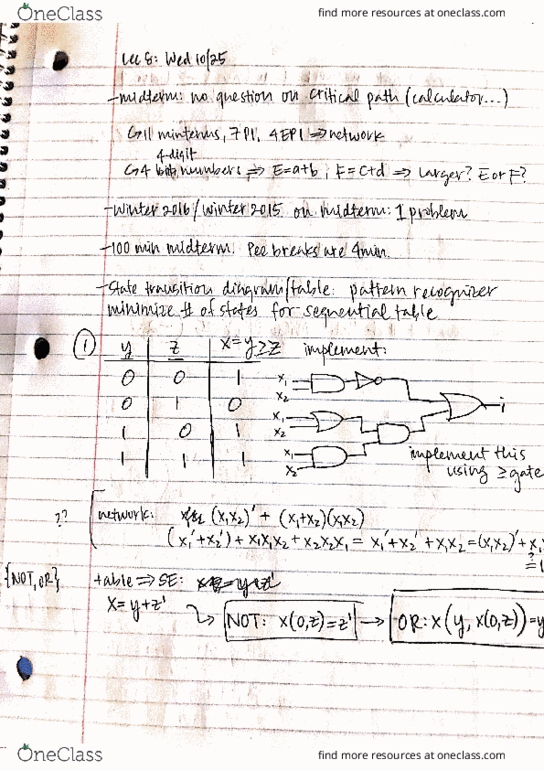 OneClass find more resources at oneclass.com
Lec 8: Wed 10/25
-midterm: no question on critical path (calculator...)
↳11 minterms, 7PI, 4EPI ⇒ network
4-digit
↳4 numbers ⇒ E=a+b ; F=c+d ⇒ Larger? E or F?
-Winter 2016/Winter 2015 on midterm: 1 problem
-100 min midterm. Pee breaks are 4min.
-State transition diagram/table: pattern recognizer
minimize # of states for sequential table
① y z x=y≥z implement:
0 0 1
0 1 0
1 0 1
1 1 1
x₁
x₂
x₁
x₂
x₁
x₂
implement this
using ≥gate
?? network: (x₁x₂)' + (x₁+x₂)(x₁x₂)
(x₁'+x₂')+x₁x₁x₂+x₂x₂x₁ = x₁'+x₂'+x₁x₂=(x₁x₂)'+x₁
=1
{NOT,OR} table ⇒ SE:
x=y+z' NOT: x(0,z)=z' → OR: x(y, x(0,z))=y
OneClass find more resources at oneclass.com